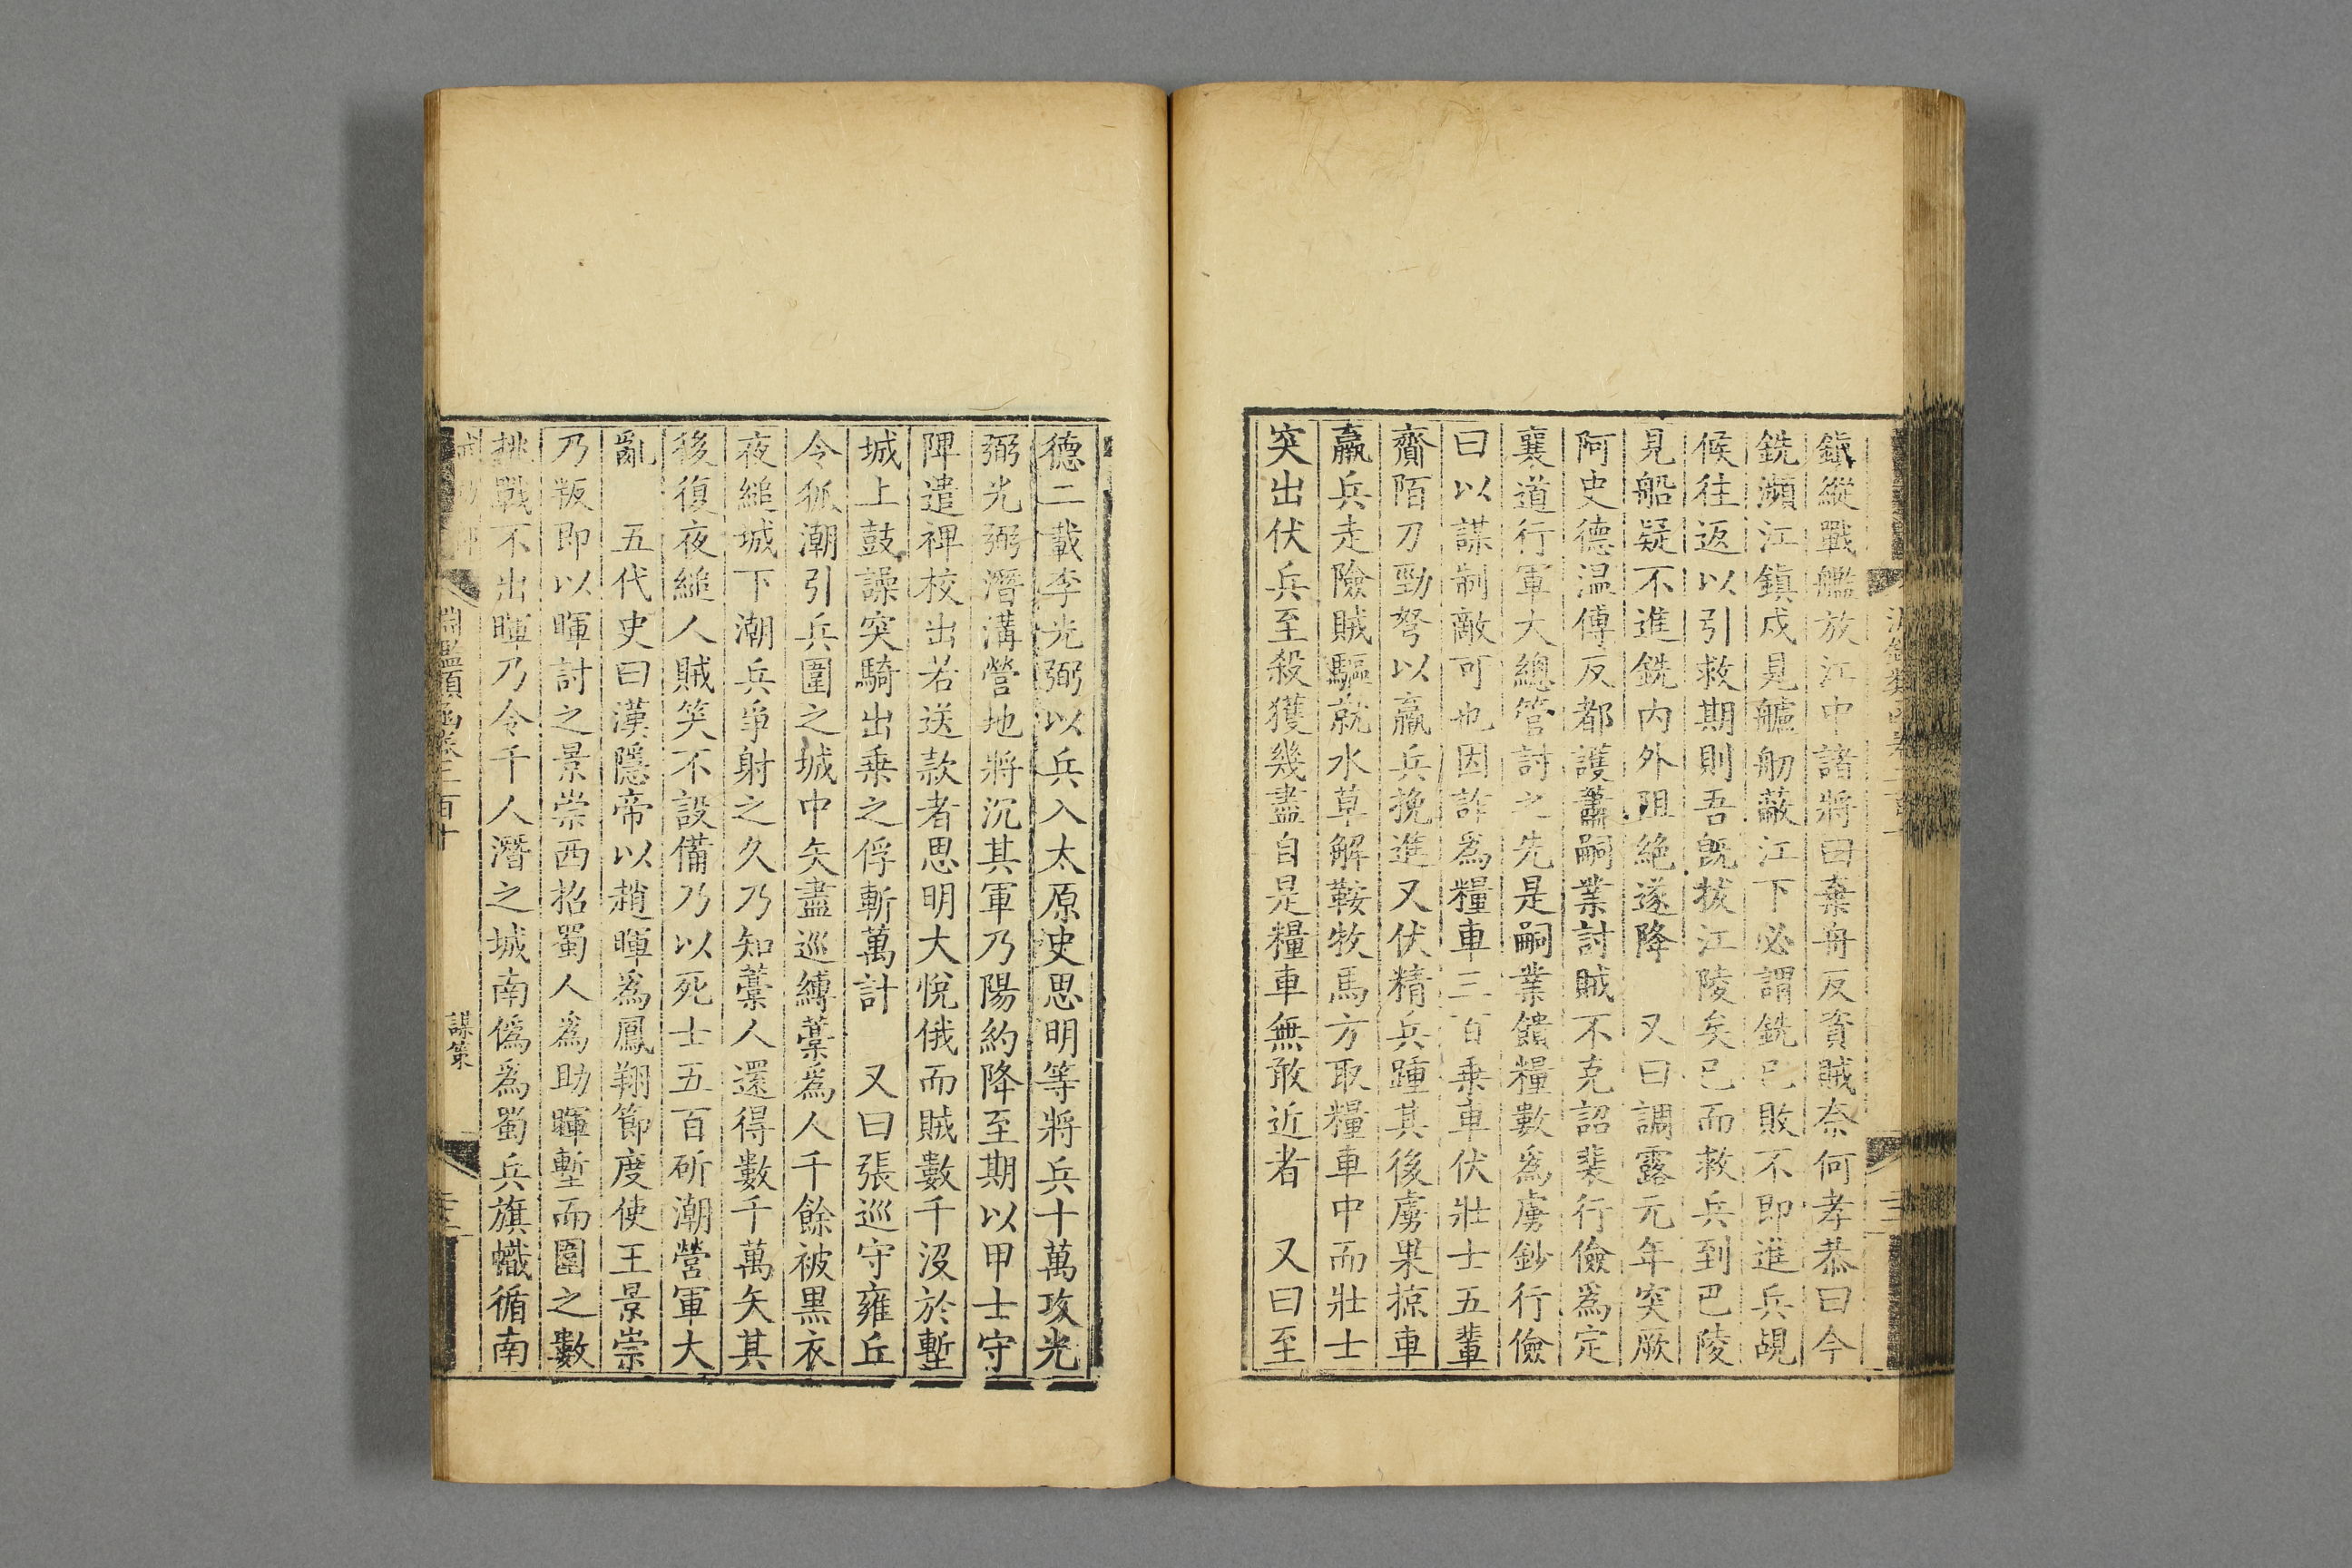 鎮縱戰艦放江中諸將曰棄舟反資賊奈何孝恭曰今
銑瀕江鎮戍見艫舠蔽江下必謂銑已敗不即進兵覘
候往返以引救期則吾旣拔江陵矣已而救兵到巴陵
見船疑不進銑內外阻絶遂降　又曰調露元年突厥
阿史德温傅反都護蕭嗣業討賊不克詔裴行儉爲定
襄道行軍大總管討之先是嗣業饋糧數爲虜鈔行儉
曰以謀制敵可也因詐爲糧車三百乗車伏壯士五輩
齎陌刀勁弩以羸兵挽進又伏精兵踵其後虜果掠車
羸兵走險賊驅就水草解鞍牧馬方取糧車中而壯士
突出伏兵至殺獲幾盡自是糧車無敢近者　又曰至
德二載李光弼以兵入太原史思明等將兵十萬攻光
弼光弼潛溝營地將沉其軍乃陽約降至期以甲士守
陴遣裨校出若送款者思明大悅俄而賊數千沒於塹
城上鼓譟突騎出乗之俘斬萬計　又曰張巡守雍丘
令狐潮引兵圍之城中矢盡巡縛藁爲人千餘被黒衣
夜縋城下潮兵爭射之久乃知藁人還得數千萬矢其
後復夜縋人賊笑不設備乃以死士五百斫潮營軍大
亂　五代史曰漢隱帝以趙暉爲鳳翔節度使王景崇
乃叛即以暉討之景崇西招蜀人爲助暉塹而圍之數
挑戰不出暉乃令千人潛之城南僞爲蜀兵旗幟循南
淵鑑類函卷二百十
謀策